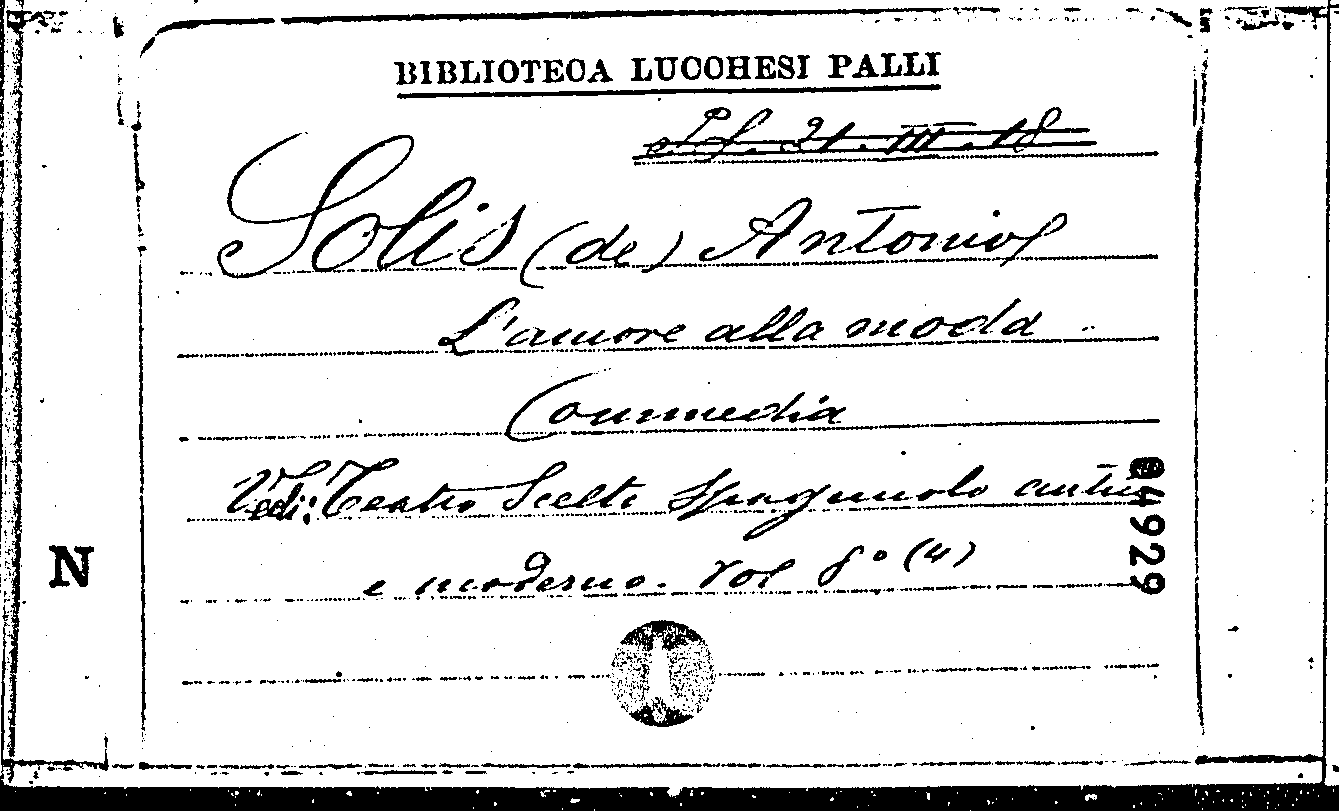 BIBLIOTECA LUCCHESI PALLI
21.III.18
Solis (de) Antonio
L'amore alla moda.
Commedia
Vedi: Teatro Scelto Spagnuolo antico
e moderno. Vol 8° (4)
84929
N